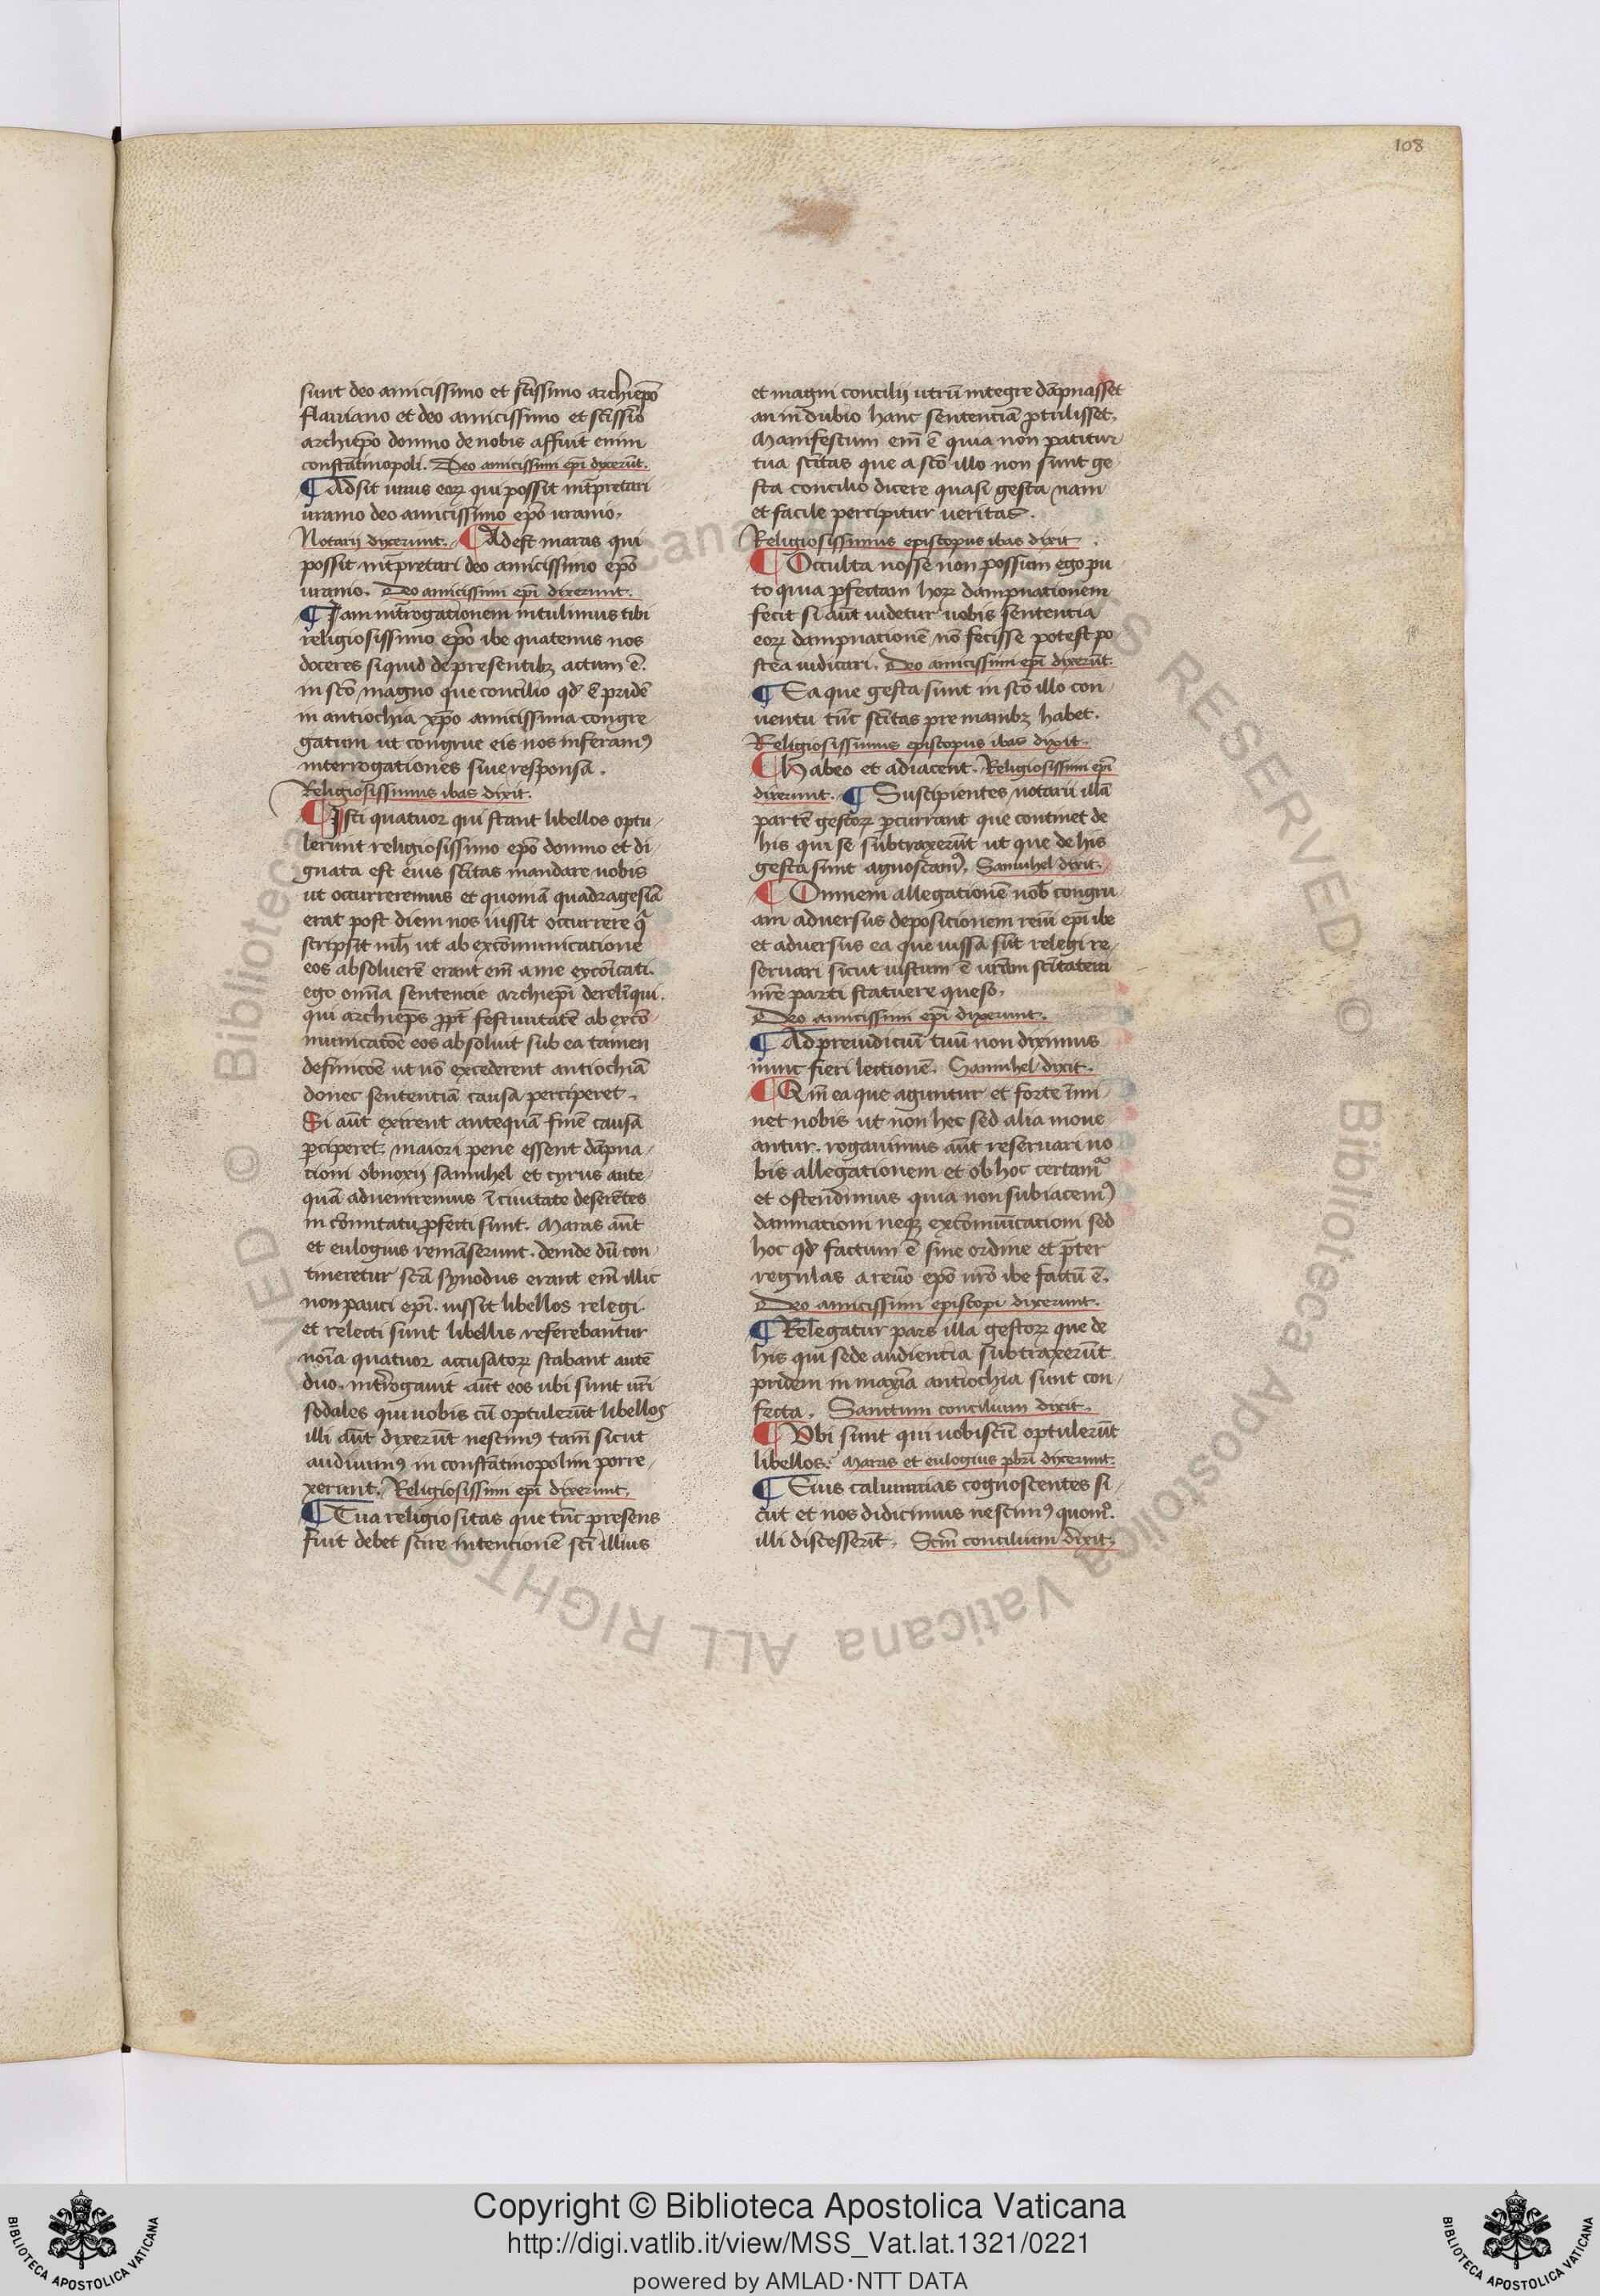 108
sunt deo amicissimo et sc̄issimo archiep̄o
flauiano et deo amicissimo et sc̄issīo
archiep̄o domno de nobis affuit enim
constātinopoli. Deo amicissimi ep̄i dixerūt.
¶ Adsit unus eoꝝ qui possit int̄pretari
uranio deo amicissimo ep̄o uranio.
Notarij dixerunt. ¶ Adest maras qui
possit int̄pretari deo amicissimo ep̄o
uranio. Deo amicissimi ep̄i dixerunt.
¶ Jam int̄rogationem intulimus tibi
religiosissimo ep̄o ibe quatenus nos
doceres siquid de presentibꝫ actum ē.
in sc̄o magno que concilio qd̄ ē pridē
in antiochia xp̄o amicissima congre
gatum ut congrue eis nos inferamꝰ
interrogationes siue responsa.
Religiosissimus ibas dixit.
¶ Jsti quatuor qui stant libellos optu
lerunt religiosissimo ep̄o domno et di
gnata est eius sc̄itas mandare nobis
ut occurreremus et quoniā quadragesīa
erat post diem nos iussit occurrere
scripsit m̄h ut ab excōmunicatione
eos absoluerē erant em̄ a me excōicati.
ego om̄ia sentencie archiep̄i derel̄iqui.
qui archiep̄s ꝓpt̄ festiuitatē ab excō
municatōe eos absoluit sub ea tamen
definicōe ut nō excederent antiochiā
donec sententiā causa perciperet.
Si aūt exirent antequā finē causa
ꝑciperet. maiori pene essent dāpna
tioni obnoxij samuhel et cyrus ante
quā adueniremus ī ciuitate deserētes
in comitatu ꝓfecti sunt. Maras aūt
et eulogius remāserunt. deinde dū con
tineretur sc̄a synodus erant em̄ illic
non pauci ep̄i. iussit libellos relegi.
et relecti sunt libellis referebantur
noīa quatuor accusatoꝝ stabant autē
duo. int̄rogauit aūt eos ubi sunt ur̄i
sodales qui uobis cū optulerūt libellos
illi aūt dixerūt nescimꝰ tam̄ sicut
audiuimꝰ in constātinopolim porre
xerunt. Religiosissimi ep̄i dixerunt.
¶ Tua religiositas que tūc presens
fuit debet scire intencionē sc̄i illius
et magni concilij utrū integre dāpnasset
an in dubio hanc sentenciā ꝓtulisset.
Manifestum em̄ ē quia non patitur
tua sc̄itas que a sc̄o illo non sunt ge
sta concilio dicere quasi gesta nam
et facile percipitur ueritas.
Religiosissimus episcopus ibas dixit
¶ Occulta nosse non possum ego pu
to quia ꝑfectam hoꝝ dampnationem
fecit si aūt uidetur uobis sententia
eoꝝ dampnationē nō fecisse potest po
stea iudicari. Deo amicissimi ep̄i dixerūt.
¶ Ea que gesta sunt in sc̄o illo con
uentu tūc sc̄itas pre manibꝫ habet.
Religiosissimus episcopus ibas dixit.
¶ Habeo et adiacent. Religiosissimi ep̄i
dixerunt. ¶ Suscipientes notarii illā
partē gestoꝝ ꝑcurrant que continet de
his qui se subtraxerūt ut que de his
gesta sunt agnoscamꝰ. Samuhel dixit.
¶ Omnem allegationē nob̄ congru
am aduersus depositionem reūi ep̄i ibe
et aduersus ea que iussa sūt relegi re
seruari sicut iustum ē ur̄am sc̄itatem
nr̄e parti statuere queso.
Deo amicissimi ep̄i dixerunt.
¶ Ad preiudiciū tuū non diximus
nunc fieri lectionē. Samuhel dixit.
¶ Qm̄ ea que aguntur et forte īmi
net nobis ut non hec sed alia moue
antur. rogauimus aūt reseruari no
bis allegationem et ob hoc certamꝰ
et ostendimus quia non subiacemꝰ
damnationi neqꝫ excōmūicationi sed
hoc qd̄ factum ē sine ordine et p̄ter
regulas a reūo ep̄o nr̄o ibe factū ē.
Deo amicissimi episcopi dixerunt.
¶ Relegatur pars illa gestoꝝ que de
his qui se de audientia subtraxerūt
pridem in maxīa antiochia sunt con
fecta. Sanctum concilium dixit.
¶ Vbi sunt qui uobiscū optulerūt
libellos. Maras et eulogius pb̄ri dixerunt.
¶ Eius calumnias cognoscentes si
cut et nos didicimus nescimꝰ quom̊.
illi discesserūt. Sc̄m concilium dixit.
Copyright © Biblioteca Apostolica Vaticana
http://digi.vatlib.it/view/MSS_Vat.lat.1321/0221
powered by AMLAD·NTT DATA
BIBLIOTECA APOSTOLICA VATICANA
BIBLIOTECA APOSTOLICA VATICANA